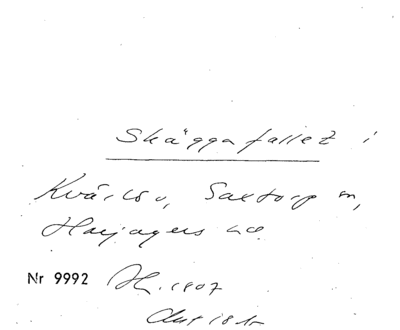 Skäggafallet i
Kvärlöv, Saxtorp sn,
Harjagers hd
Nr 9992 Ill. 1807
Akt 18